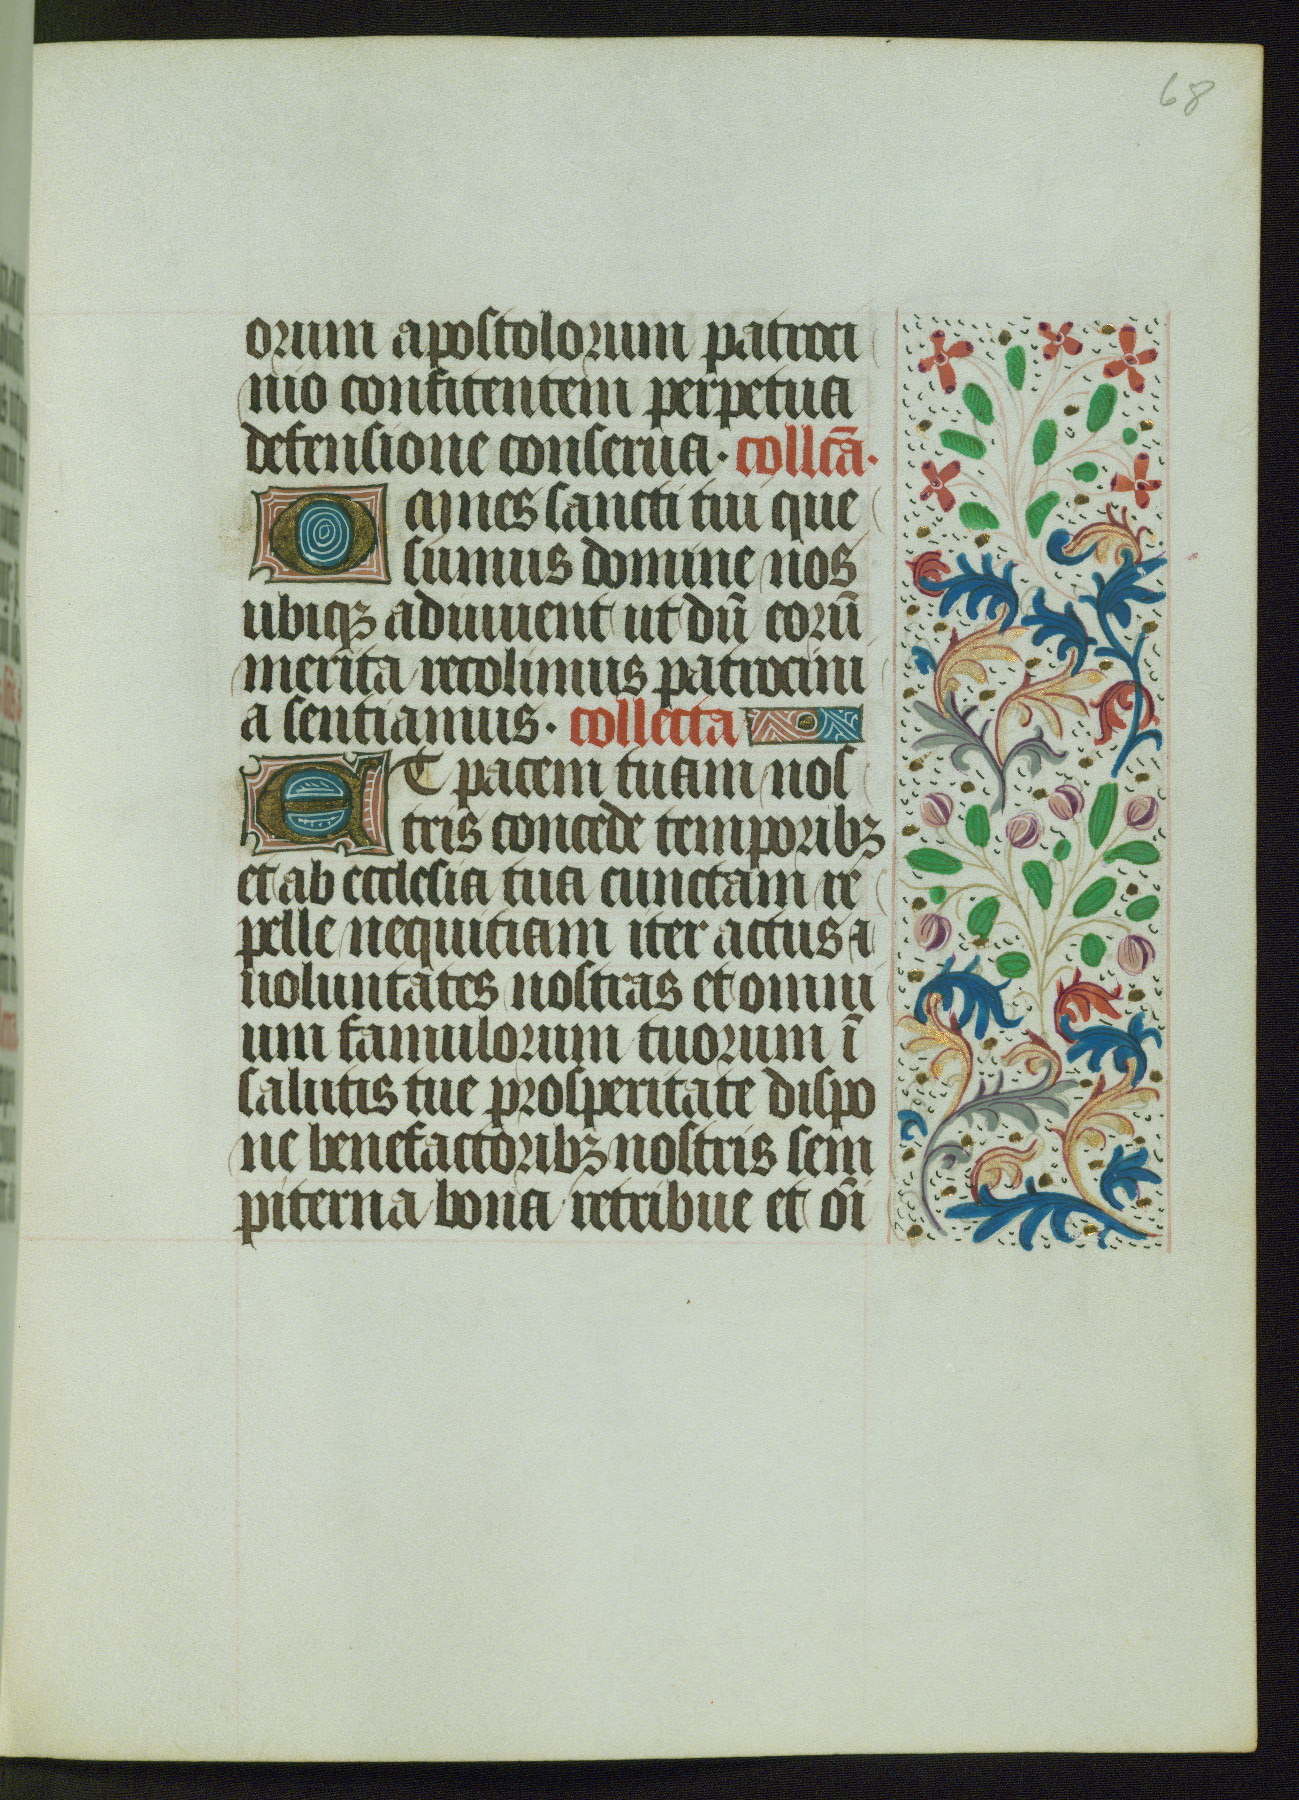 68
orum apostolorum patroci
nio confitentem perpetua
defensione conserua · collcā ·
Omnes sancti tui que
sumus domine nos
ubiqꝫ adiuuent ut dū eorū
merita recolimus patrocini
a sentiamus · collecta
Et pacem tuam nos
tris concede temporibꝫ
et ab ecclesia tua cunctam re
pelle nequitiam iter actus a
uoluntates nostras et omni
um famulorum tuorum ī
salutis tue prosperitate dispo
ne benefactoribꝫ nostris sem
piterna bona retribue et oī